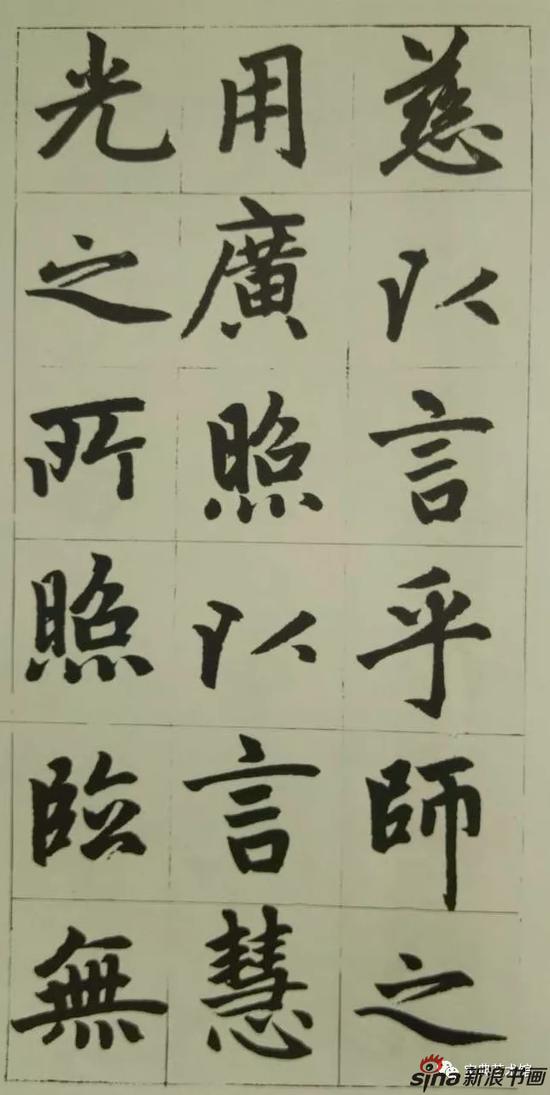 慈以言乎師之
用廣照以言慧
光之所照臨無
典艺术馆
sina新浪书画